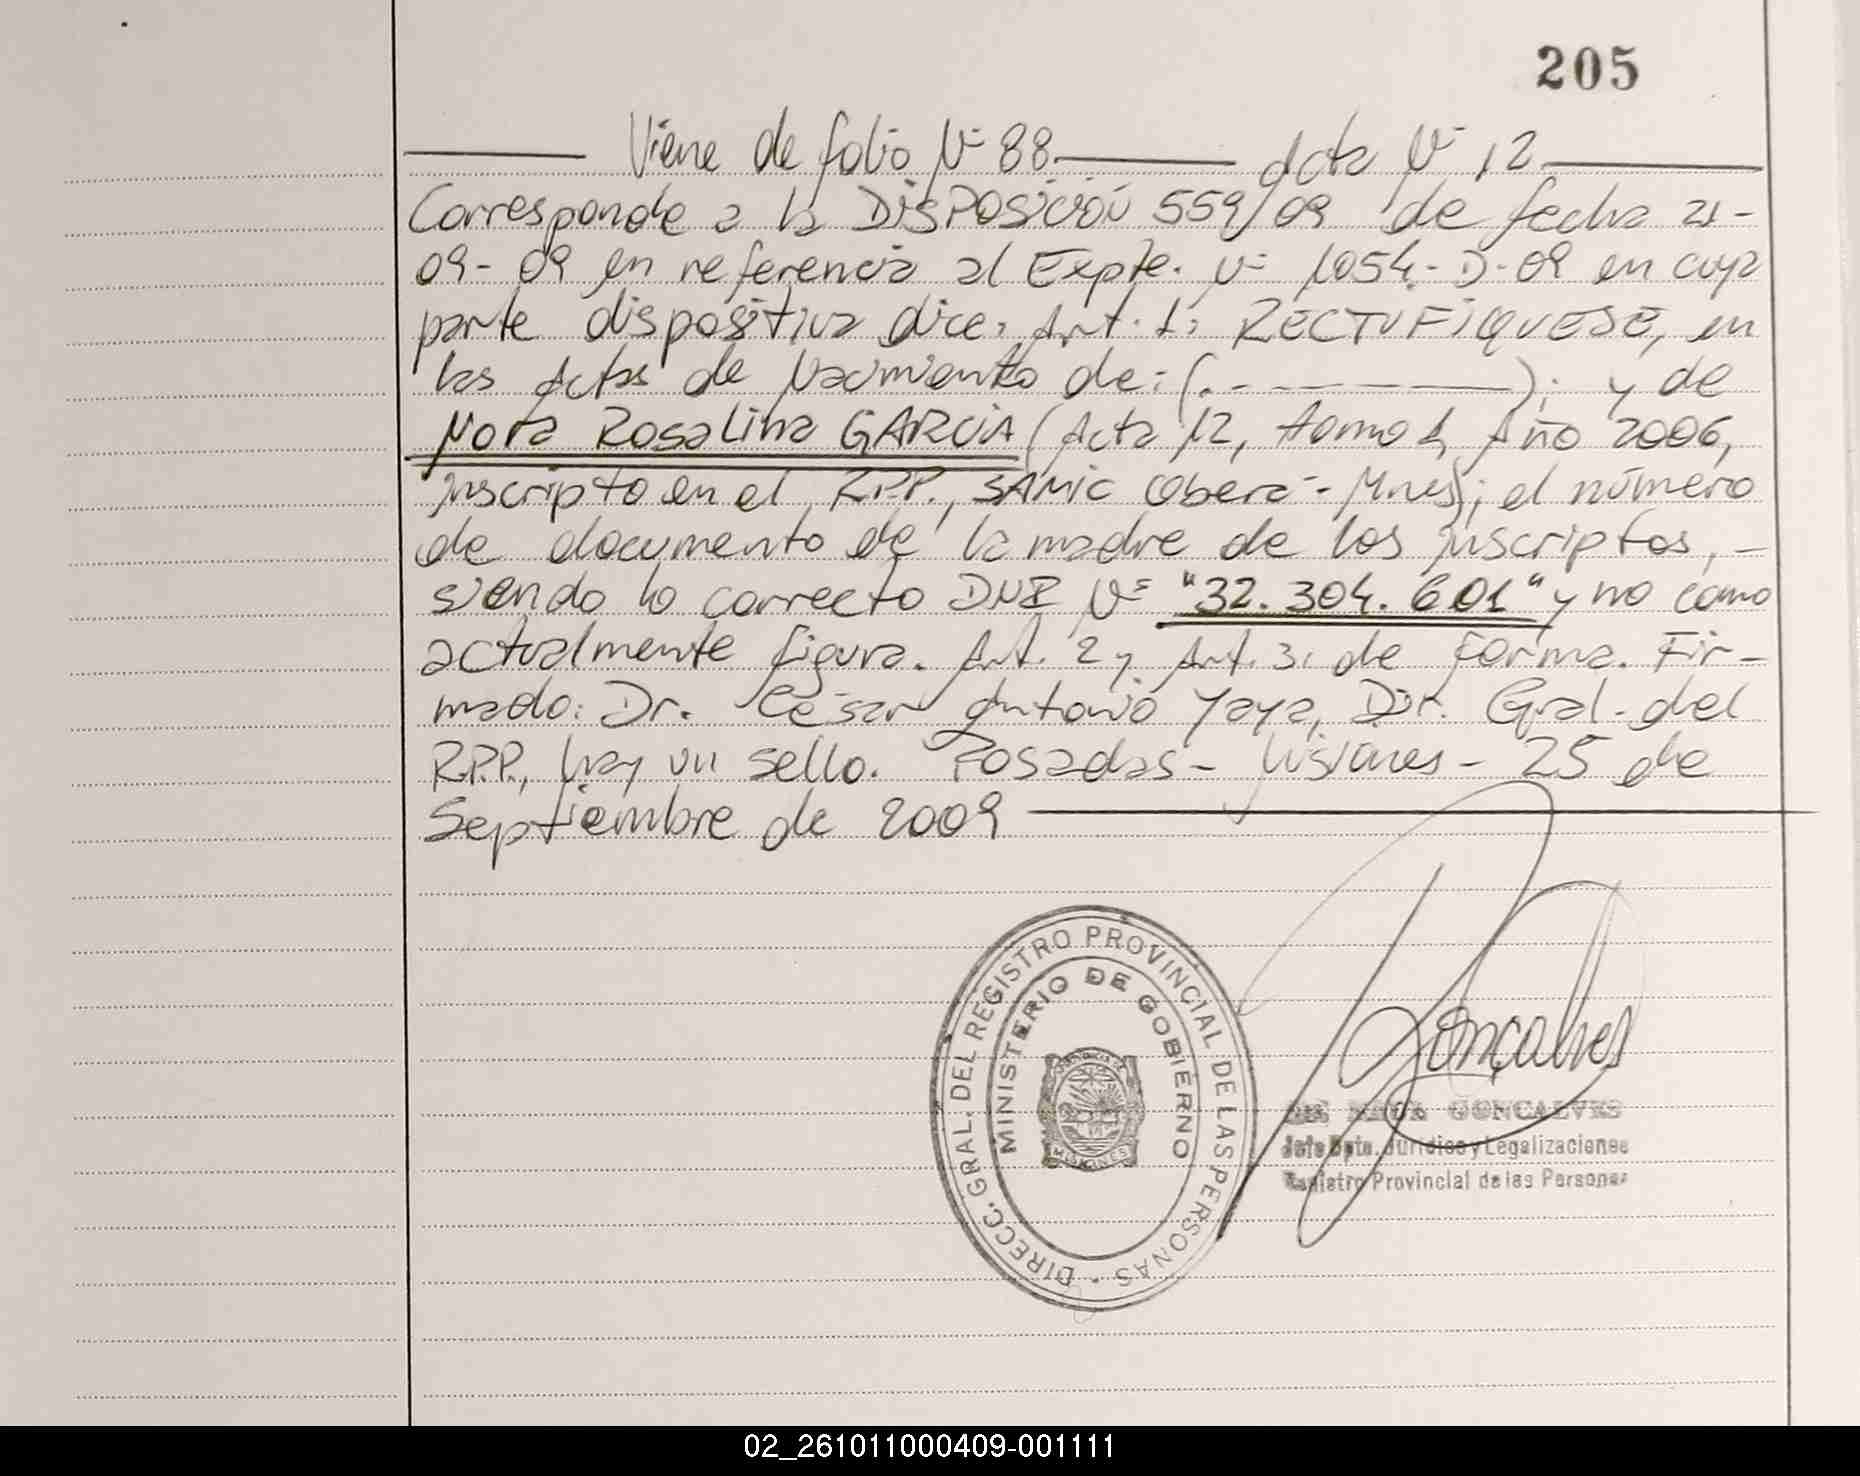 205
Viene de folio Nº 88 acta Nº 12
Corresponde a la DISPOSICIÓN 559/09 de fecha 21-
09-09 en referencia al Expte. Nº 1054-D-09 en cuya
parte dispositiva dice: Art. 1: RECTIFIQUESE, en
las Actas de Nacimiento de: (. - - - - - -); y de
Nora Rosalina GARCIA (Acta 12, tomo 1, Año 2006,
inscripto en el R.P.P., SAMIC Oberá - Mnes); el número
de documento de la madre de los inscriptos, -
siendo lo correcto DNI Nº "32.304.601" y no como
actualmente figura. Art. 2 y Art. 3: de forma. Fir-
mado: Dr. César Antonio Yaya, Dir. Gral. del
R.P.P., hay un sello. Posadas - Misiones - 25 de
Septiembre de 2009
DIRECC. GRAL. DEL REGISTRO PROVINCIAL DE LAS PERSONAS
MINISTERIO DE GOBIERNO
MISIONES
Gonçalves
GONCALVES
Jefe Dpto. Jurídico y Legalizaciones
Registro Provincial de las Personas
02_261011000409-001111